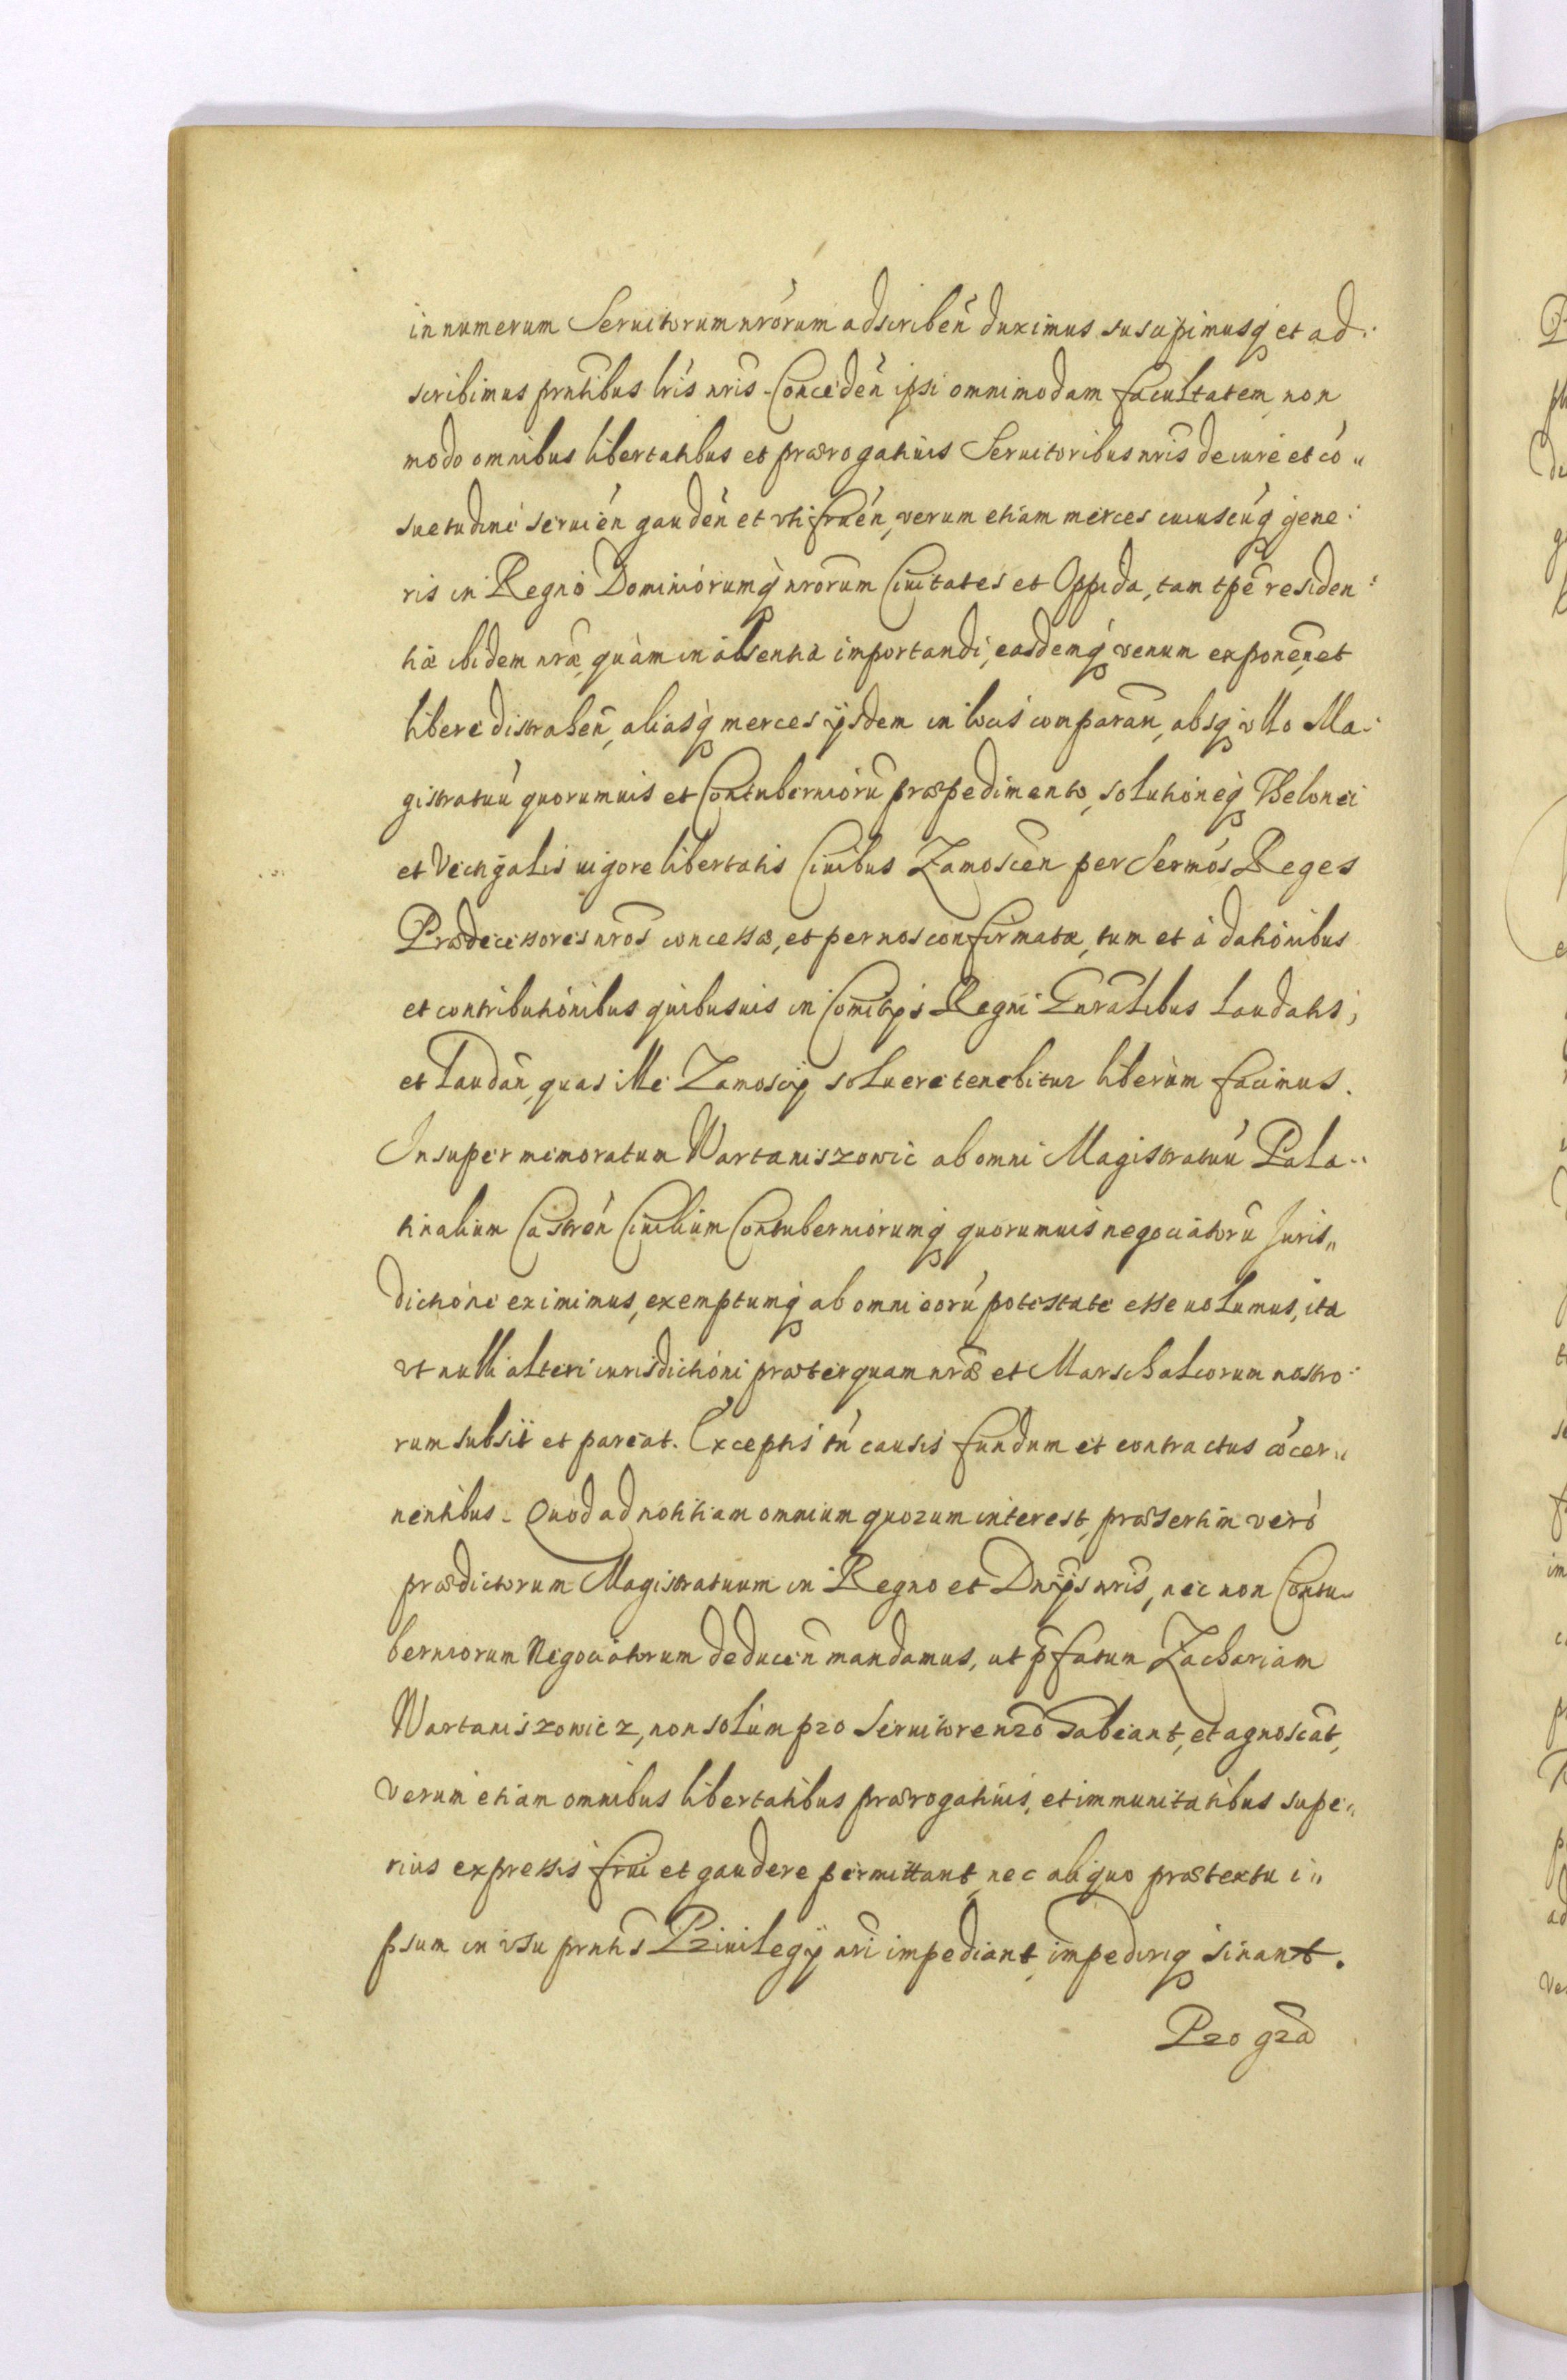 in numerum Seruitorum nrorum adscribeñ duximus suscipimusq et ad:
scribimus prntibus lris nris. Concedeñ ipsi omnimodam facultatem non
modo omnibus libertatibus et prærogatiuis Seruitoribus nris de iure et cõ„
suetudine seruieñ gaudeñ et vti frueñ, verum etiam merces cuiuscũq gene:
ris in Regno Dominiorumq nrorum Ciuitates et Oppida, tam tpe residen:
tiæ ibidem nræ, quàm in absentia importandi, easdemq venum exponeñ, et
libere distraheñ, aliasq merces ijsdem in locis comparañ, absq vllo Ma:
gistratuũ quorumuis et Contuberniorũ præpedimento, solutioneq Thelonei
et Vectigalis uigore libertatis Ciuibus Zamosceñ per Sermos Reges
Prædecessores nros concessæ, et per nos confirmatæ, tum et à dationibus
et contributionibus quibusuis in Comitijs Regni Gnralibus laudatis,
et laudañ, quas ille Zamoscij soluere tenebitur liberum facimus.
Insuper memoratum Wartaniszowic ab omni Magistratuũ Pala„
tinalium Castreñ Ciuilium Contuberniorumq quorumuis negociatorũ Juris„
dictione eximimus, exemptumq ab omni eorũ potestate esse uolumus, ita
vt nulli alteri iurisdictioni præterquam nræ et Marschalcorum nostro:
rum subsit et pareat. Exceptis tñ causis fundum et contractus cõcer„
nentibus. Quod ad notitiam omnium quorum interest, præsertim verò
prædictorum Magistratuum in Regno et Dnijs nris, nec non Contu„
berniorum Negociatorum deduceñ mandamus, ut p̃fatum Zachariam
Wartaniszowicz, non solùm pro Seruitore nro habeant, et agnoscãt,
verum etiam omnibus libertatibus prærogatiuis, et immunitatibus supe„
rius expressis frui et gaudere permittant, nec aliquo prætextu i„
psum in vsu prntis Priuilegij nri impediant, impediriq sinant.
Pro gra